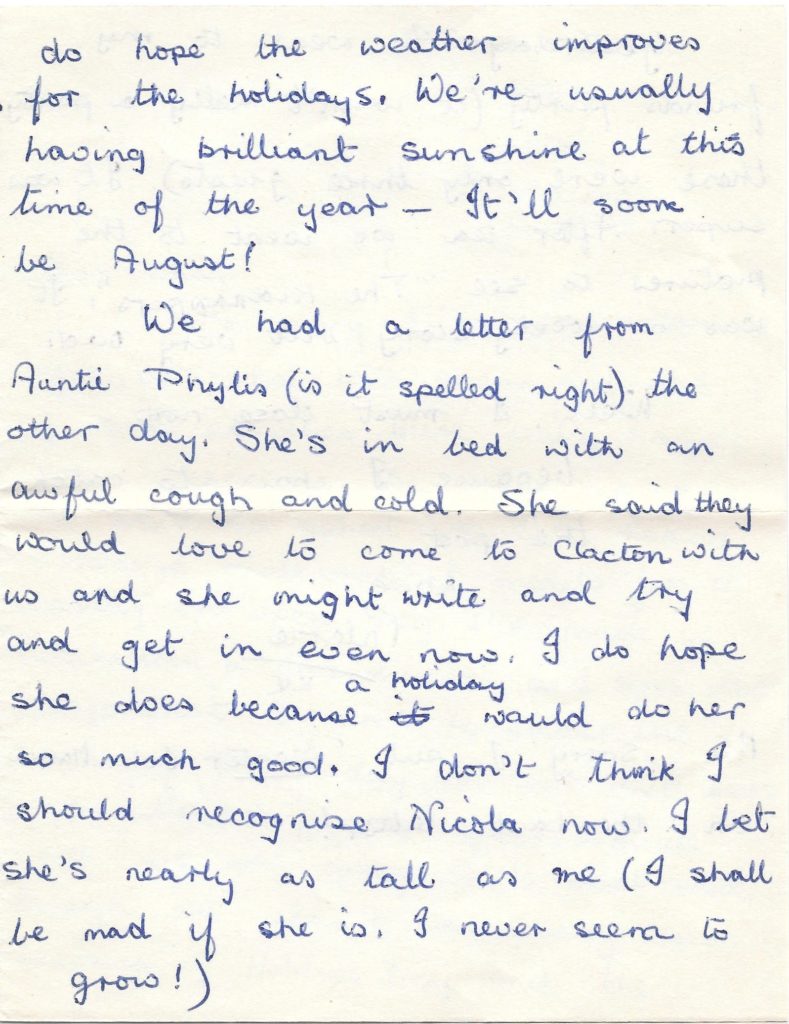 do hope the weather improves
for the holidays. We're usually
having brilliant sunshine at this
time of the year – It'll soon
be August!
We had a letter from
Auntie Phylis (is it spelled right) the
other day. She's in bed with an
awful cough and cold. She said they
would love to come to Clacton with
us and she might write and try
and get in even now. I do hope
a holiday
she does because it would do her
so much good. I don't think I
should recognise Nicola now. I bet
she's nearly as tall as me (I shall
be mad if she is. I never seem to
grow!)